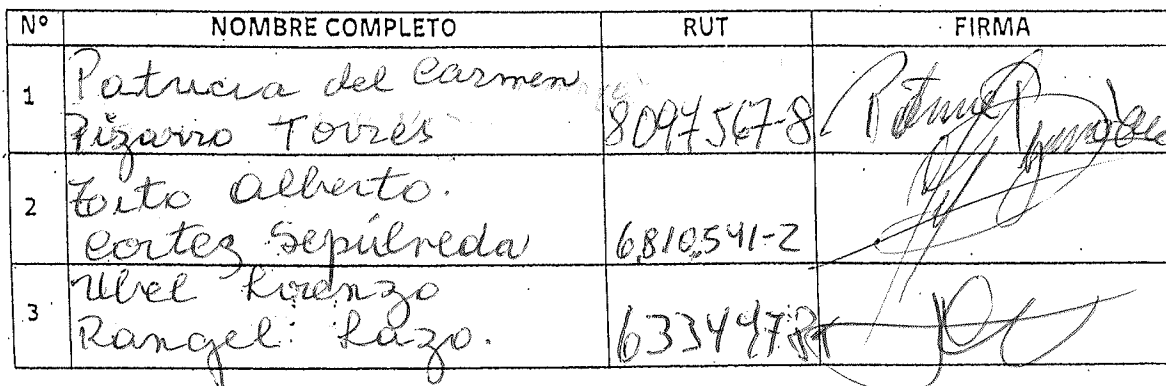 Nº NOMBRE COMPLETO RUT FIRMA
1 Patricia del Carmen
Pizarro Torres 8097567-8
2 Tito Alberto.
Cortez Sepúlveda 6.810.541-2
3 Ubel Lorenzo
Rangel Lazo.